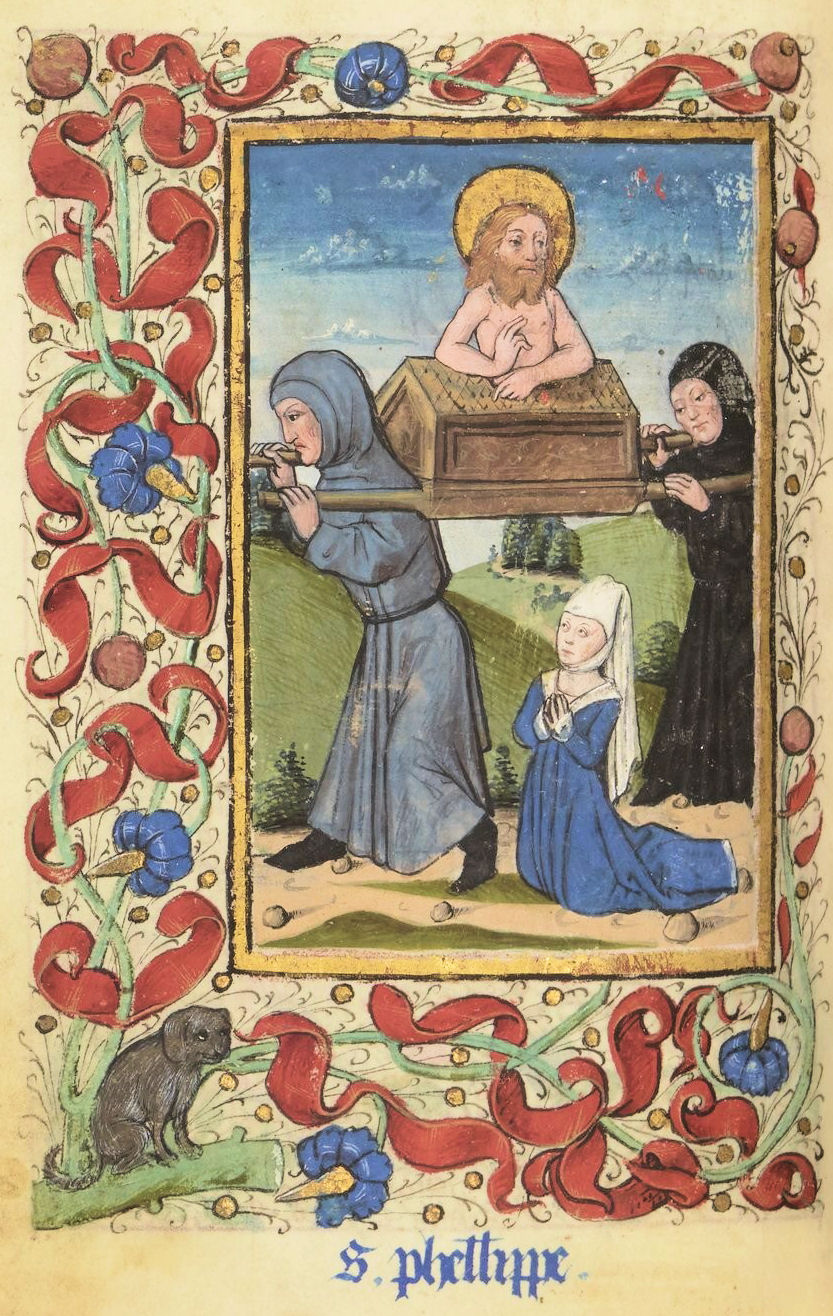 S. phelippe.